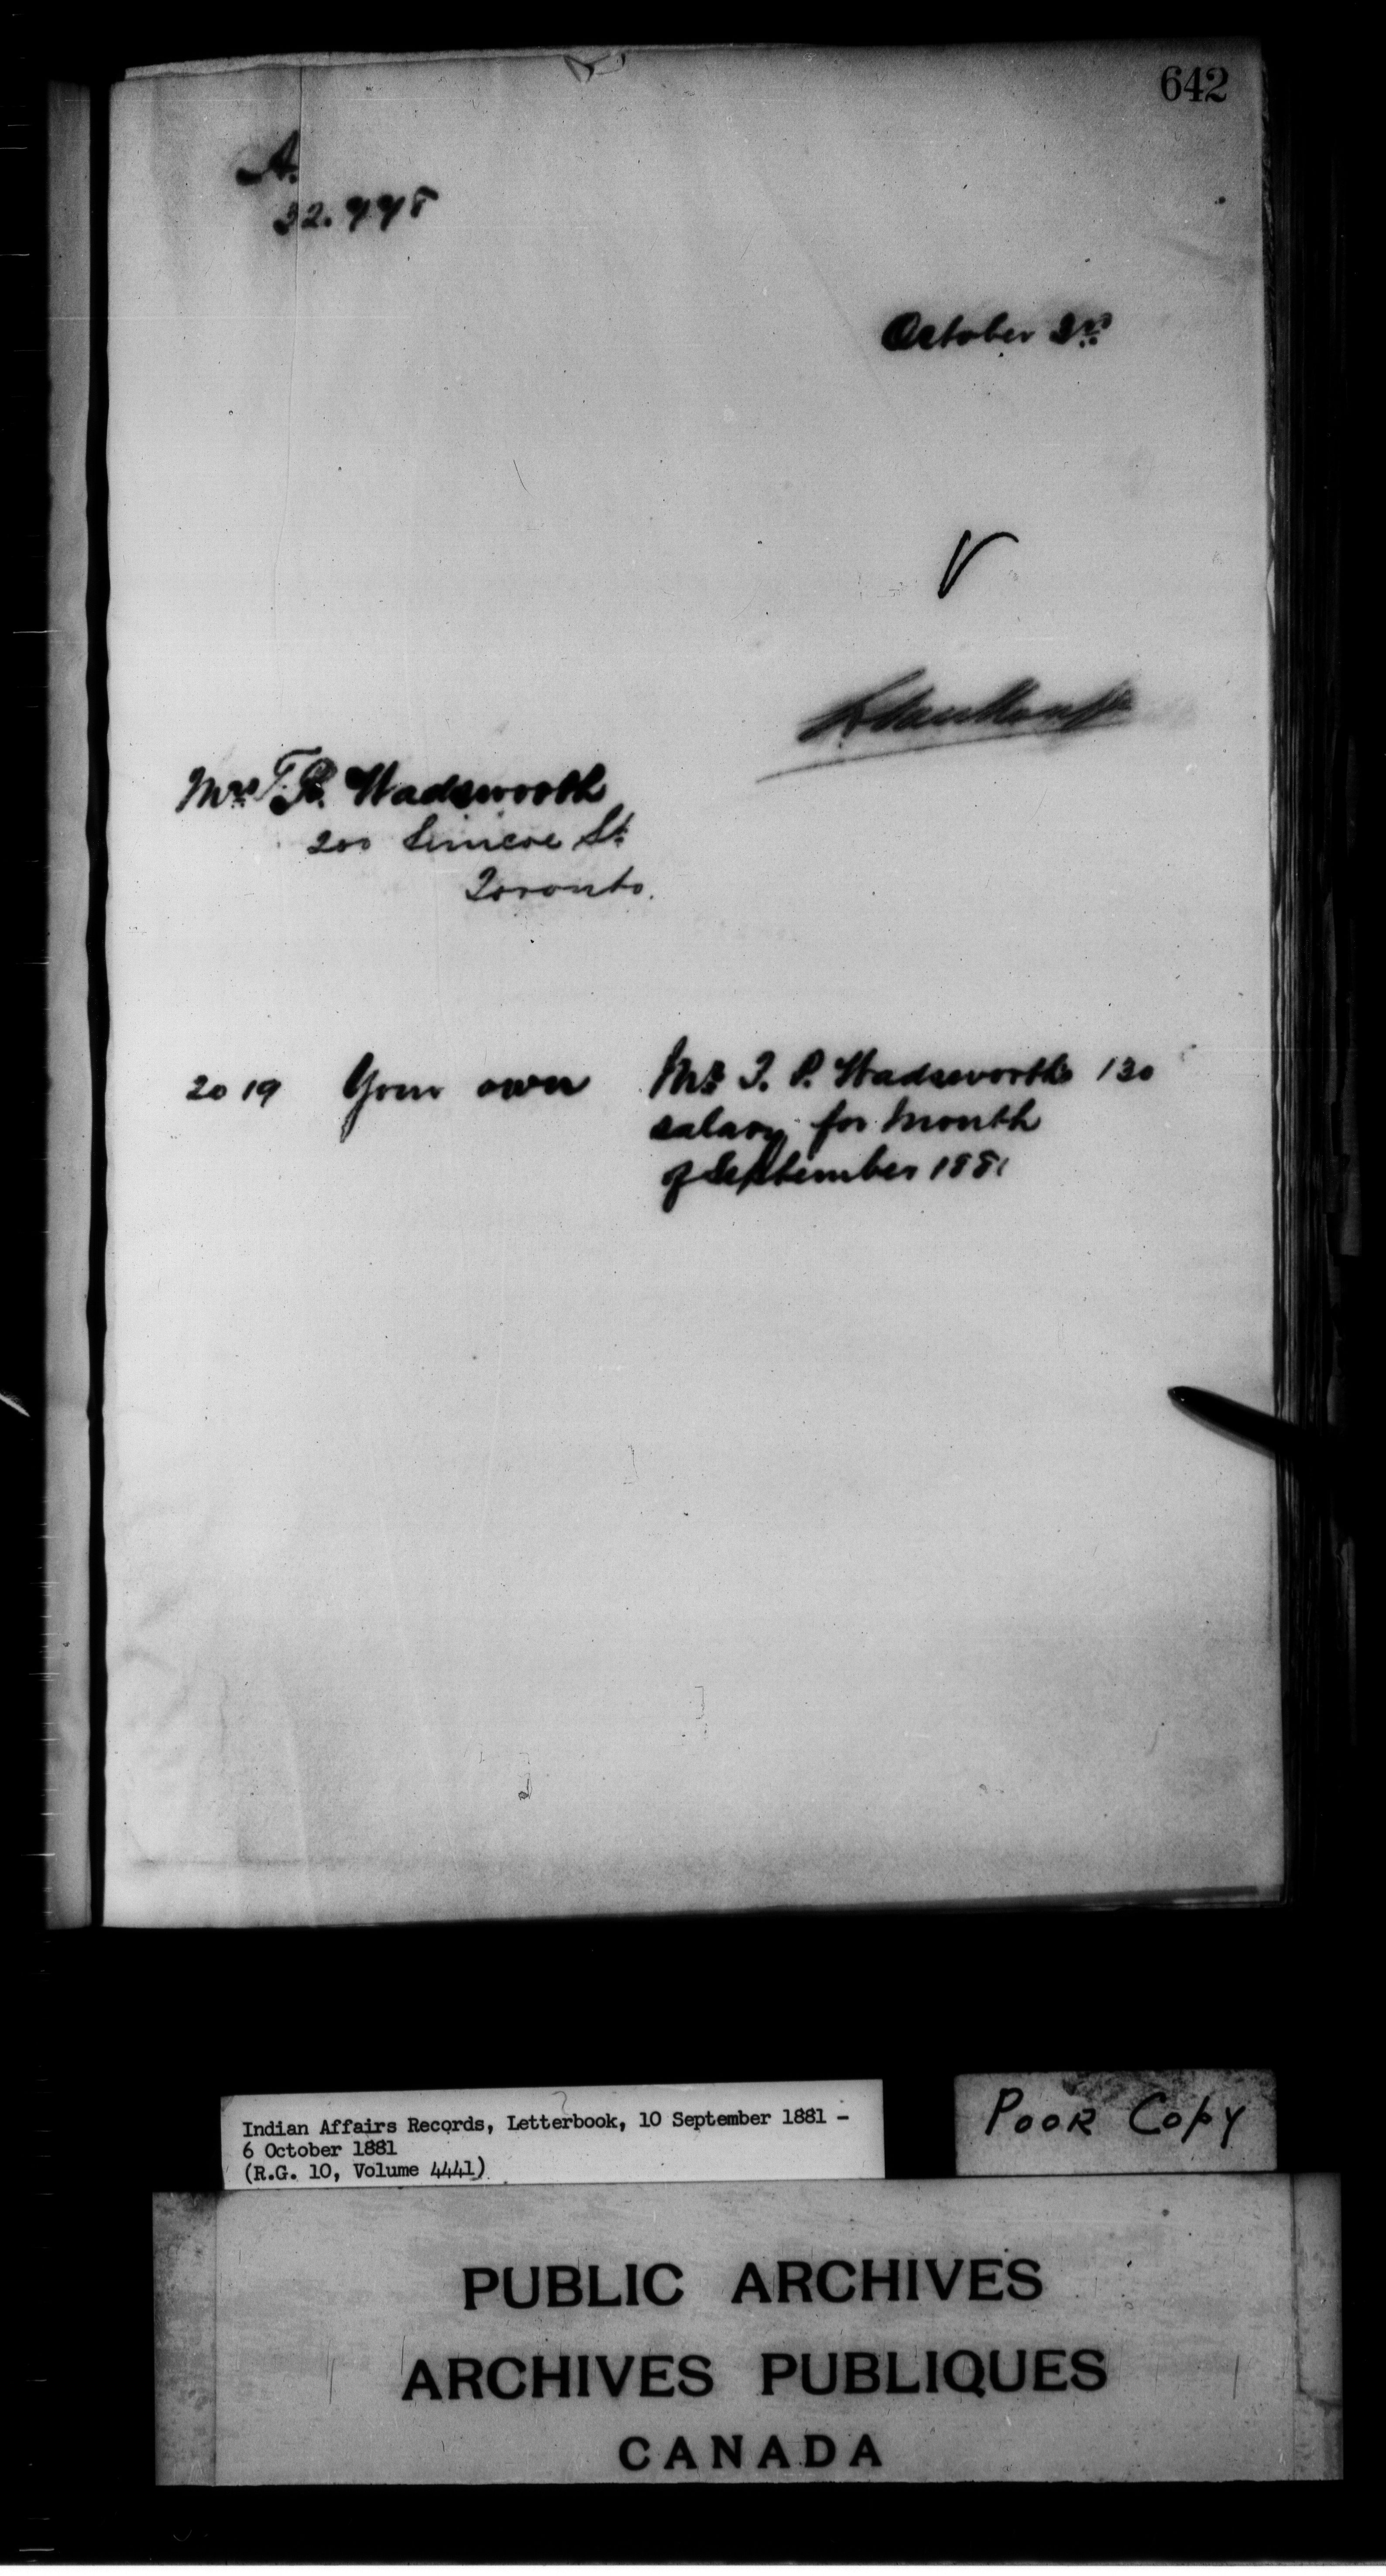 642
A.
October 3rd
Mrs T. P. Wadsworth
200 Simcoe St.
Toronto.
2019 Your own Mr. T. P. Wadsworth's 130
salary for month
of September 1881
Indian Affairs Records, Letterbook, 10 September 1881 –
6 October 1881
(R.G. 10, Volume 4441)
POOR COPY
PUBLIC ARCHIVES
ARCHIVES PUBLIQUES
CANADA